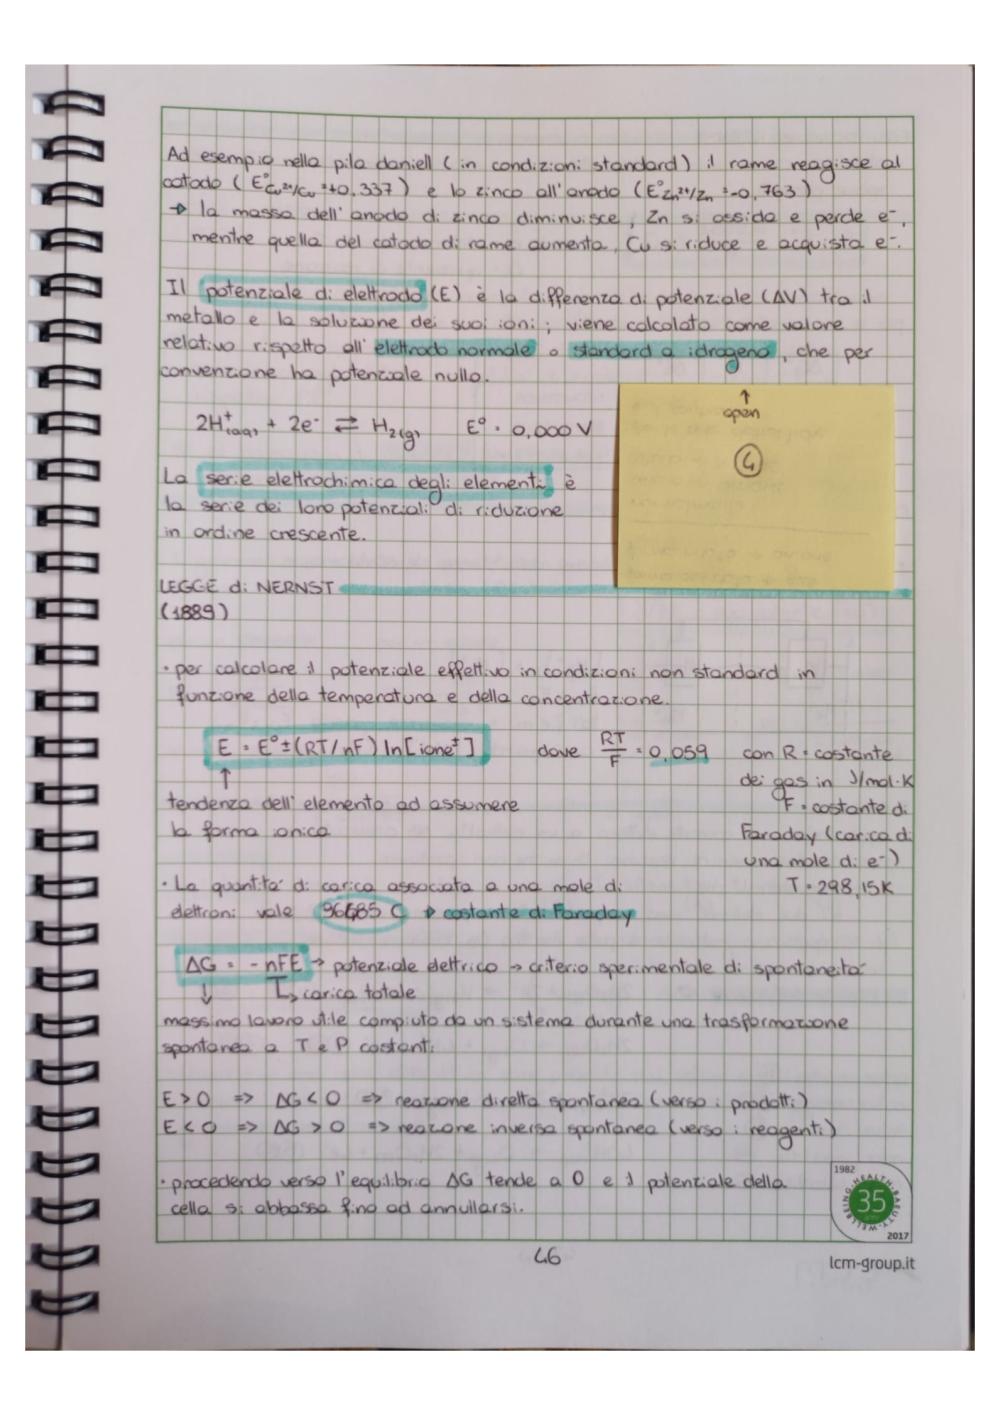 Ad esempio nella pila daniell (in condizioni standard) il rame reagisce al
catodo (E°Cu²⁺/Cu =+0,337) e lo zinco all'anodo (E°Zn²⁺/Zn =-0,763)
→ la massa dell'anodo di zinco diminuisce, Zn si ossida e perde e⁻,
mentre quella del catodo di rame aumenta, Cu si riduce e acquista e⁻.
Il potenziale di elettrodo (E) è la differenza di potenziale (ΔV) tra il
metallo e la soluzione dei suoi ioni; viene calcolato come valore
relativo rispetto all'elettrodo normale o standard a idrogeno, che per
convenzione ha potenziale nullo.
2H⁺(aq) + 2e⁻ ⇄ H₂(g) E° = 0,000 V
↑
open
4
La serie elettrochimica degli elementi è
la serie dei loro potenziali di riduzione
in ordine crescente.
LEGGE di NERNST
(1889)
• per calcolare il potenziale effettivo in condizioni non standard in
funzione della temperatura e della concentrazione.
E = E° ± (RT/nF) ln[ione±] dove RT/F = 0,059 con R = costante
dei gas in J/mol·K
↑
tendenza dell'elemento ad assumere F = costante di
la forma ionica Faraday (carica di
una mole di e⁻)
• La quantità di carica associata a una mole di T = 298,15K
elettroni vale 96485 C → costante di Faraday
ΔG = -nFE → potenziale elettrico → criterio sperimentale di spontaneità
↓ ↳ carica totale
massimo lavoro utile compiuto da un sistema durante una trasformazione
spontanea a T e P costanti
E > 0 => ΔG < 0 => reazione diretta spontanea (verso i prodotti)
E < 0 => ΔG > 0 => reazione inversa spontanea (verso i reagenti)
• procedendo verso l'equilibrio ΔG tende a 0 e il potenziale della
cella si abbassa fino ad annullarsi.
1982
HEALTH-BEAUTY-WELLBEING
35
2017
46
lcm-group.it